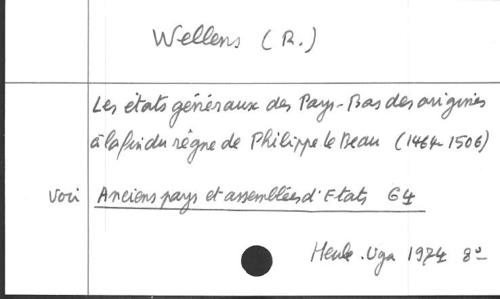 Wellens (R.)
Les états généraux des Pays-Bas des origines
à la fin du règne de Philippe le Beau (1464-1506)
Voir Anciens pays et assemblées d'Etats 64
Heule. Uga 1974 8°